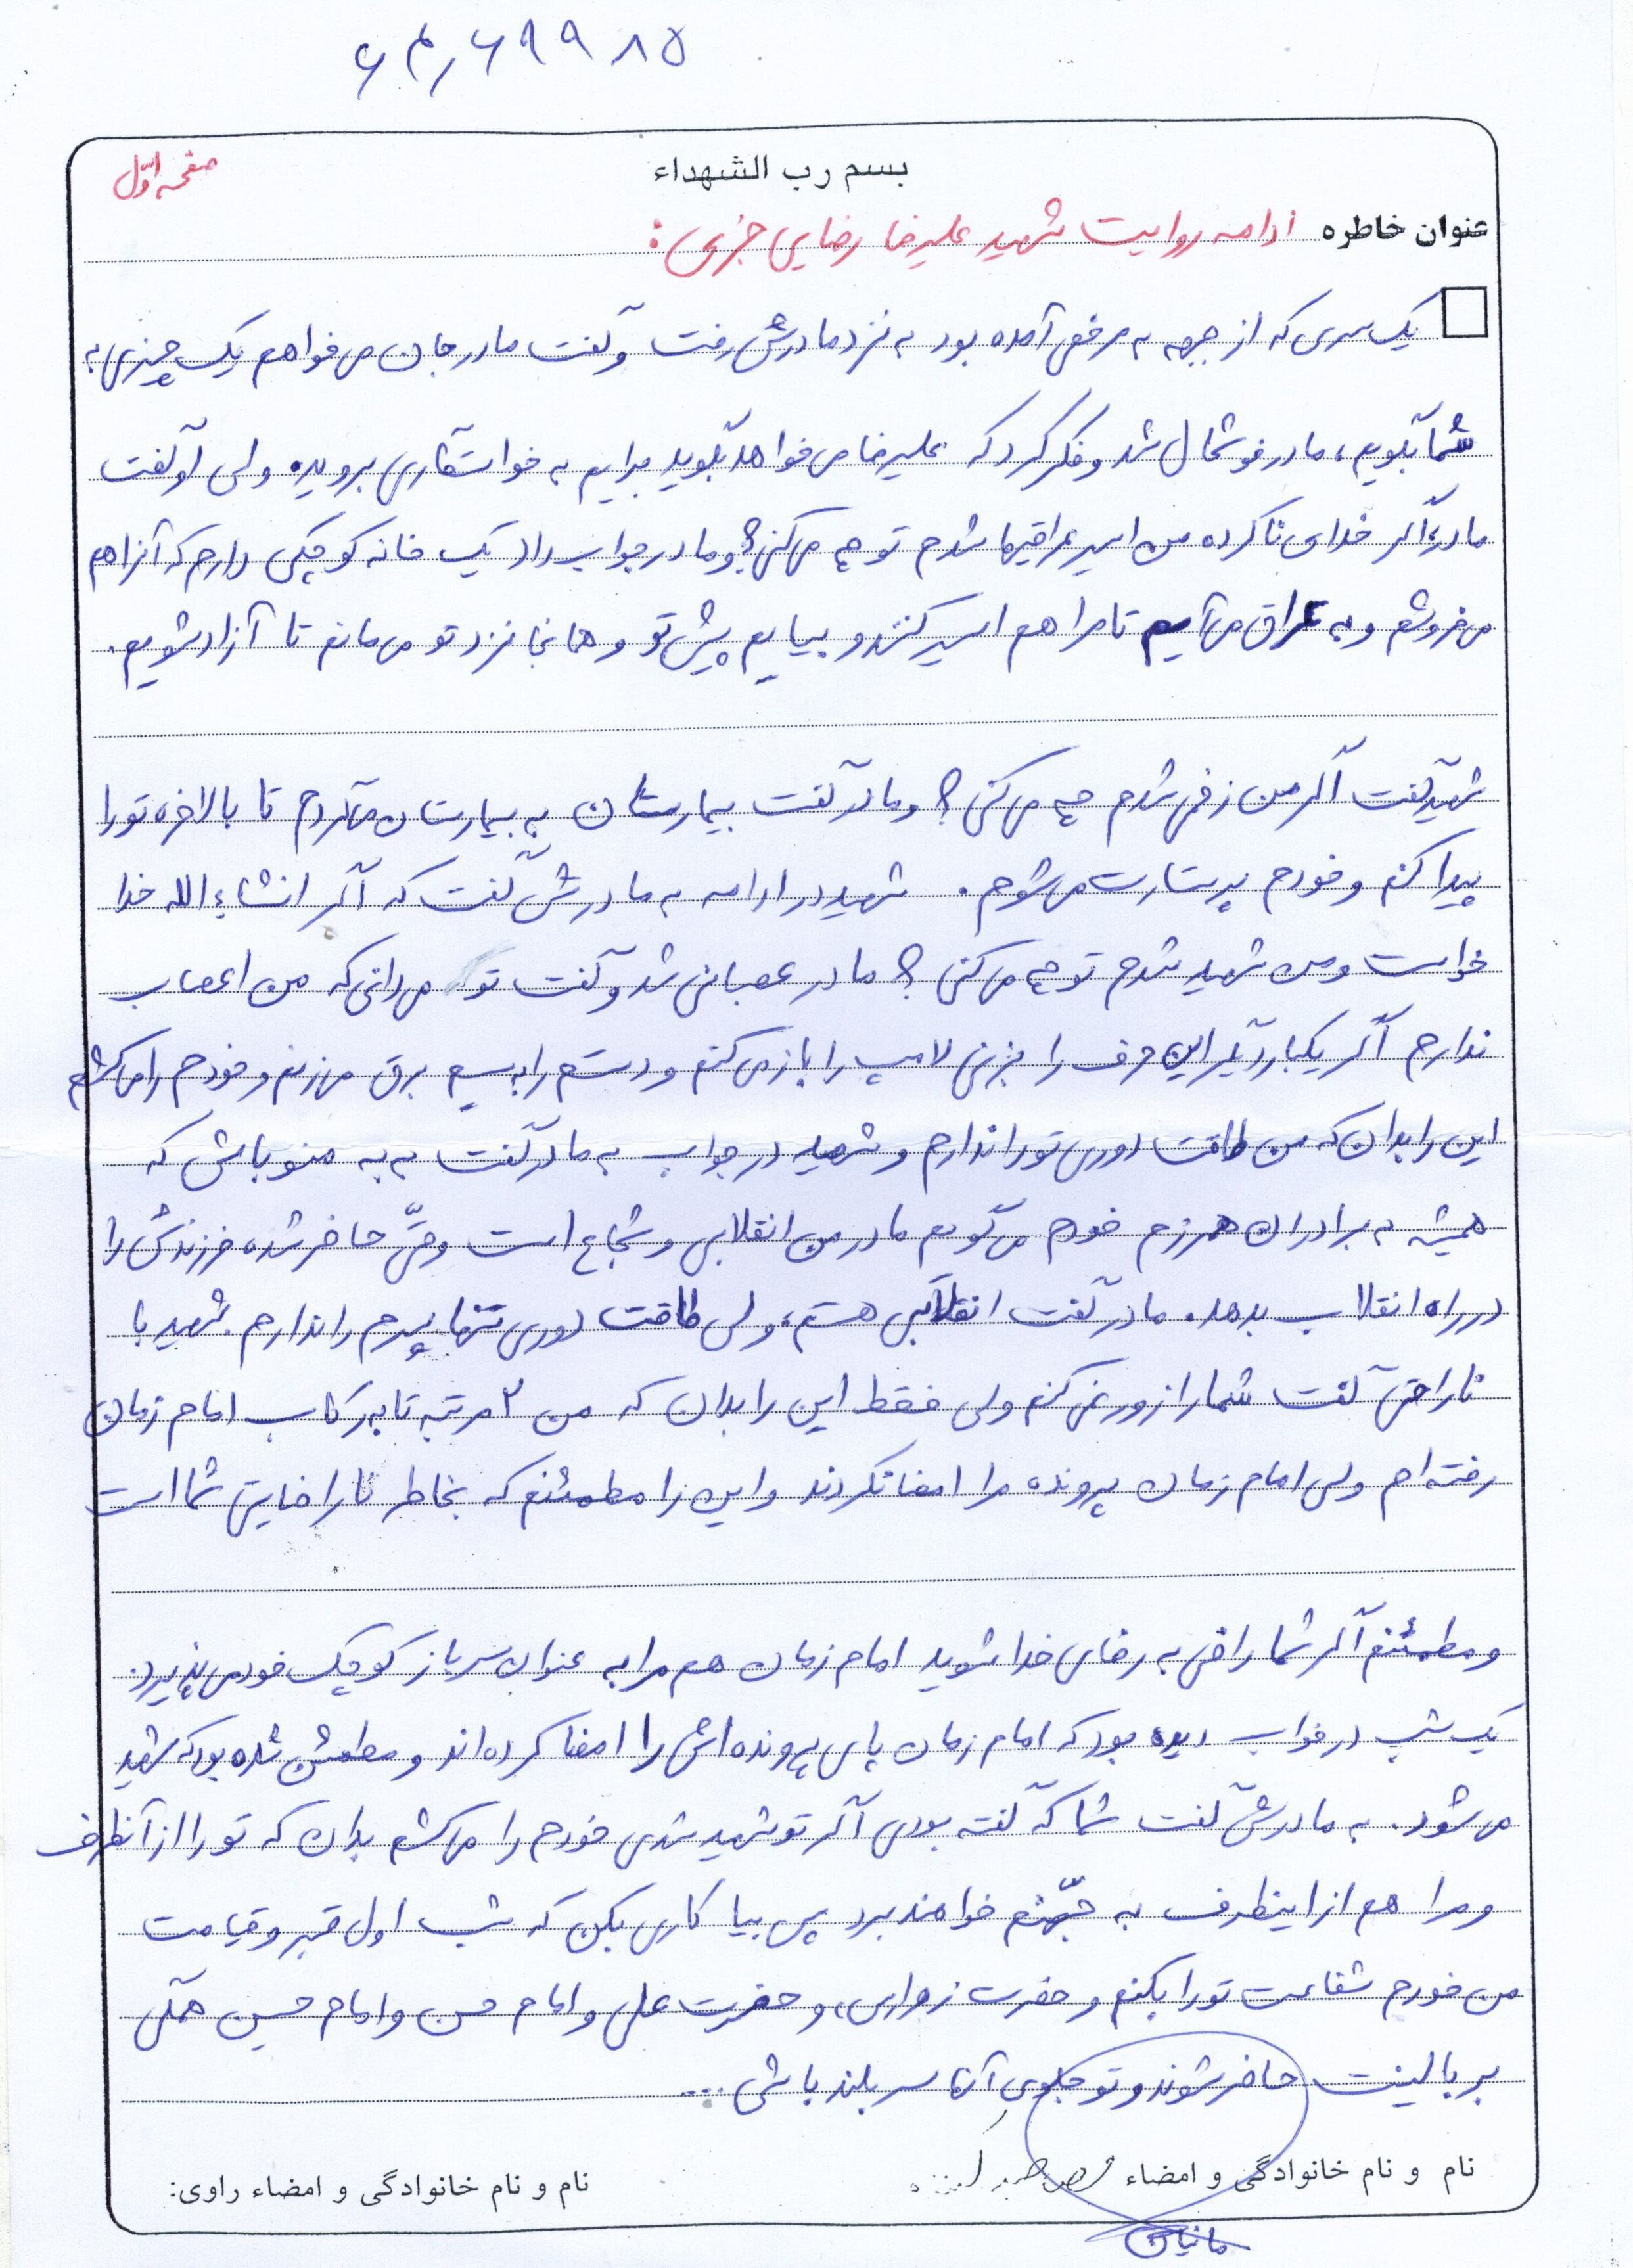 ۶۶۹۹۸۵
بسم رب الشهداء
صفحه اوّل
عنوان خاطره ادامه روایت شهید علیرضا رضایی جزی:
یک سری که از جبهه به مرخصی آمده بود به نزد مادرش رفت و گفت مادر جان می خواهم یک چیزی به
شما بگویم، مادر خوشحال شد و فکر کرد که علیرضا می خواهد بگوید برایم به خواستگاری بروید، ولی او گفت
مادر، اگر خدای ناکرده من اسیر عراقیها شدم تو چه می کنی؟ و مادر جواب داد یک خانه کوچکی دارم که آنرا هم
می فروشم و به عراق می آیم تا مرا هم اسیر کنند و بیایم پیش تو و همانجا نزد تو می مانم تا آزاد شویم.
شهید گفت اگر من زخمی شدم چه می کنی؟ و مادر گفت بیمارستان به بیمارستان می گردم تا بالاخره تو را
پیدا کنم و خودم پرستارت می شوم. شهید در ادامه به مادرش گفت که اگر انشاءالله خدا
خواست و من شهید شدم تو چه می کنی؟ مادر عصبانی شد و گفت تو می دانی که من اعصاب
ندارم اگر یکبار دیگر این حرف را بزنی لامپ را باز می کنم و دستم را به سیم برق می زنم و خودم را می کشم
این را بدان که من طاقت دوری تو را ندارم و شهید در جواب به مادر گفت به به منو باش که
همیشه به برادران همرزم خودم می گویم مادر من انقلابی و شجاع است و حتّی حاضر شده فرزندش را
در راه انقلاب بدهد. مادر گفت انقلابی هستم، ولی طاقت دوری تنها پسرم را ندارم. شهید با
ناراحتی گفت شما را زور نمی کنم ولی فقط این را بدان که من ۲ مرتبه تا به رکاب امام زمان
رفته ام ولی امام زمان پرونده مرا امضا نکردند و این را مطمئنم که بخاطر نارضایتی شما است
و مطمئنم اگر شما راضی به رضای خدا شوید امام زمان هم مرا به عنوان سرباز کوچک خود می پذیرد.
یک شب در خواب دیده بود که امام زمان پای پرونده اش را امضا کرده اند و مطمئن شده بود که شهید
می شود. به مادرش گفت شما که گفته بودی اگر تو شهید شدی خودم را می کشم بدان که تو را از آنطرف
و مرا هم از اینطرف به جهّنم خواهند برد پس بیا کاری بکن که شب اول قبر و قیامت
من خودم شفاعت تو را بکنم و حضرت زهرا، و حضرت علی و امام حسن و امام حسین همگی
بر بالینت حاضر شوند و تو جلوی آنها سربلند باشی ....
نام و نام خانوادگی و امضاء
نام و نام خانوادگی و امضاء راوی: